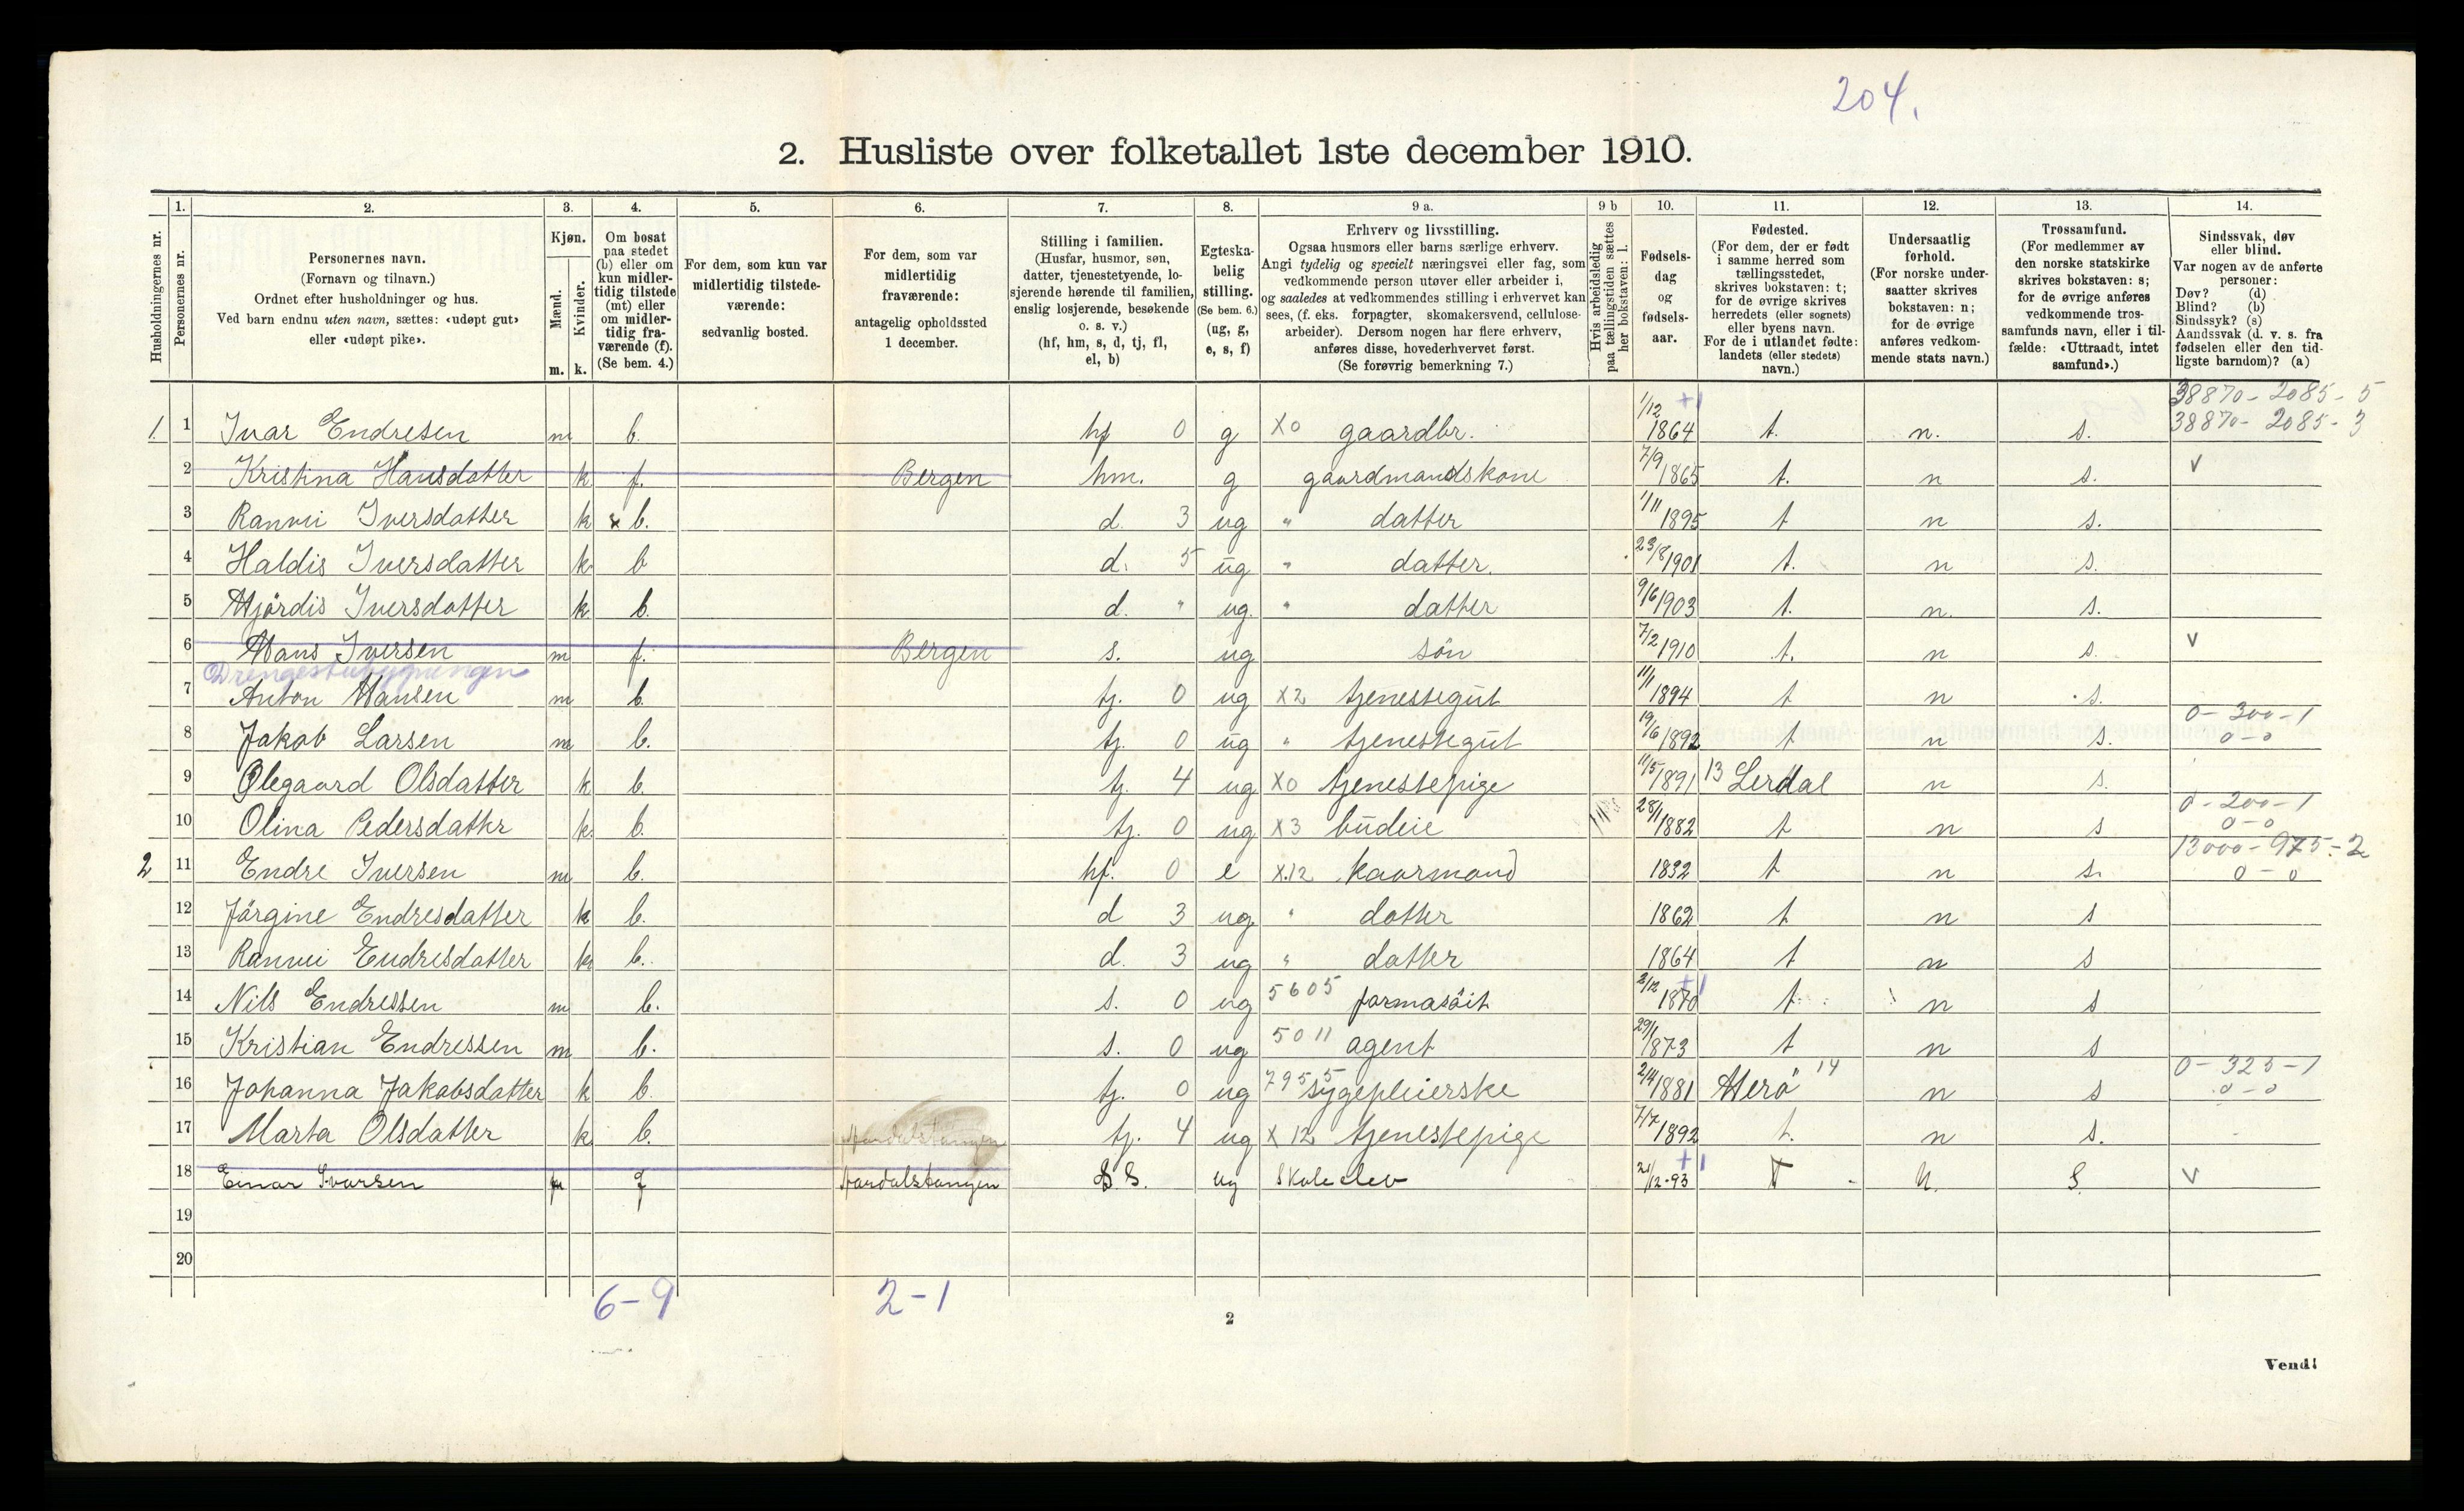 204.
2. Husliste over folketallet 1ste december 1910.
Husholdningernes nr.
1. Personernes nr.
2. Personernes navn.
(Fornavn og tilnavn.)
Ordnet efter husholdninger og hus.
Ved barn endnu uten navn, sættes: «udøpt gut»
eller «udøpt pike».
3. Kjøn.
Mænd. m.
Kvinder. k.
4. Om bosat
paa stedet
(b) eller om
kun midler-
tidig tilstede
(mt) eller
om midler-
tidig fra-
værende (f).
(Se bem. 4.)
5. For dem, som kun var
midlertidig tilstede-
værende:
sedvanlig bosted.
6. For dem, som var
midlertidig
fraværende:
antagelig opholdssted
1 december.
7. Stilling i familien.
(Husfar, husmor, søn,
datter, tjenestetyende, lo-
sjerende hørende til familien,
enslig losjerende, besøkende
o. s. v.)
(hf, hm, s, d, tj, fl,
el, b)
8. Egteska-
belig
stilling.
(Se bem. 6.)
(ug, g,
e, s, f)
9 a. Erhverv og livsstilling.
Ogsaa husmors eller barns særlige erhverv.
Angi tydelig og specielt næringsvei eller fag, som
vedkommende person utøver eller arbeider i,
og saaledes at vedkommendes stilling i erhvervet kan
sees, (f. eks. forpagter, skomakersvend, cellulose-
arbeider). Dersom nogen har flere erhverv,
anføres disse, hovederhvervet først.
(Se forøvrig bemerkning 7.)
9 b Hvis arbeidsledig
paa tællingstiden sættes
her bokstaven: l.
10. Fødsels-
dag
og
fødsels-
aar.
11. Fødested.
(For dem, der er født
i samme herred som
tællingsstedet,
skrives bokstaven: t;
for de øvrige skrives
herredets (eller sognets)
eller byens navn.
For de i utlandet fødte:
landets (eller stedets)
navn.)
12. Undersaatlig
forhold.
(For norske under-
saatter skrives
bokstaven: n;
for de øvrige
anføres vedkom-
mende stats navn.)
13. Trossamfund.
(For medlemmer av
den norske statskirke
skrives bokstaven: s;
for de øvrige anføres
vedkommende tros-
samfunds navn, eller i til-
fælde: «Uttraadt, intet
samfund».)
14. Sindssvak, døv
eller blind.
Var nogen av de anførte
personer:
Døv? (d)
Blind? (b)
Sindssyk? (s)
Aandssvak (d. v. s. fra
fødselen eller den tid-
ligste barndom)? (a)
38870-2085-5
1. 1 Ivar Endresen m b. hf 0 g X0 gaardbr. 1/12 +1 1864 t. n. s. 38870-2085-3
2 Kristina Hansdatter k f. Bergen hm. g gaardmandskone 7/9 1865 t. n s. v
3 Ranvei Iversdatter k x b. d. 3 ug " datter 1/11 1895 t n s.
4 Haldis Iversdatter k b d. 5 ug " datter. 23/8 1901 t. n s.
5 Hjördis Iversdatter k b. d. " ug. " datter 9/6 1903 t. n. s.
6 Hans Iversen m f. Bergen s. ug sön 7/2 1910 t. n s. v
Drengestubygningen
7 Anton Hansen m b. tj. 0 ug X2 tjenestegut 11/1 1894 t n s.
0-300-1
8 Jakob Larsen m b. tj. 0 ug " tjenestegut 19/6 1892 t n s. 0-0
9 Ølegaard Olsdatter k b. tj. 4 ug X0 tjenestepige 11/5 1891 13 Lerdal n s.
0-200-1
10 Olina Pedersdatter k. b. tj. 0 ug X3 budeie 28/1 1882 t n s 0-0
13000-975-2
2 11 Endre Iversen m b. hf. 0 e X.12 kaarmand 1832 t n s. 0-0
12 Jörgine Endresdatter k b. d 3 ug " datter 1862 t n s
13 Ranvei Endresdatter k b. d. 3 ug " datter 1864 t n s
14 Nils Endressen m b. s. 0 ug 5605 farmasöit 2/12 +1 1870 t n s
15 Kristian Endressen m b. s. 0 ug 5011 agent 29/1 1873 t n s
0-325-1
16 Johanna Jakobsdatter k b. tj. 0 ug 7955 sygepleierske 2/4 1881 Herö 14 n s 0-0
17 Marta Olsdatter k b. Aardalstangen tj. 4 ug X 12 tjenestepige 7/7 1892 t. n s.
18 Einar Ivarsen m f Aardalstangen S. ug Skoleelev 21/12-93 +1 T N. S. v
19
20
6-9 2-1
2
Vend!